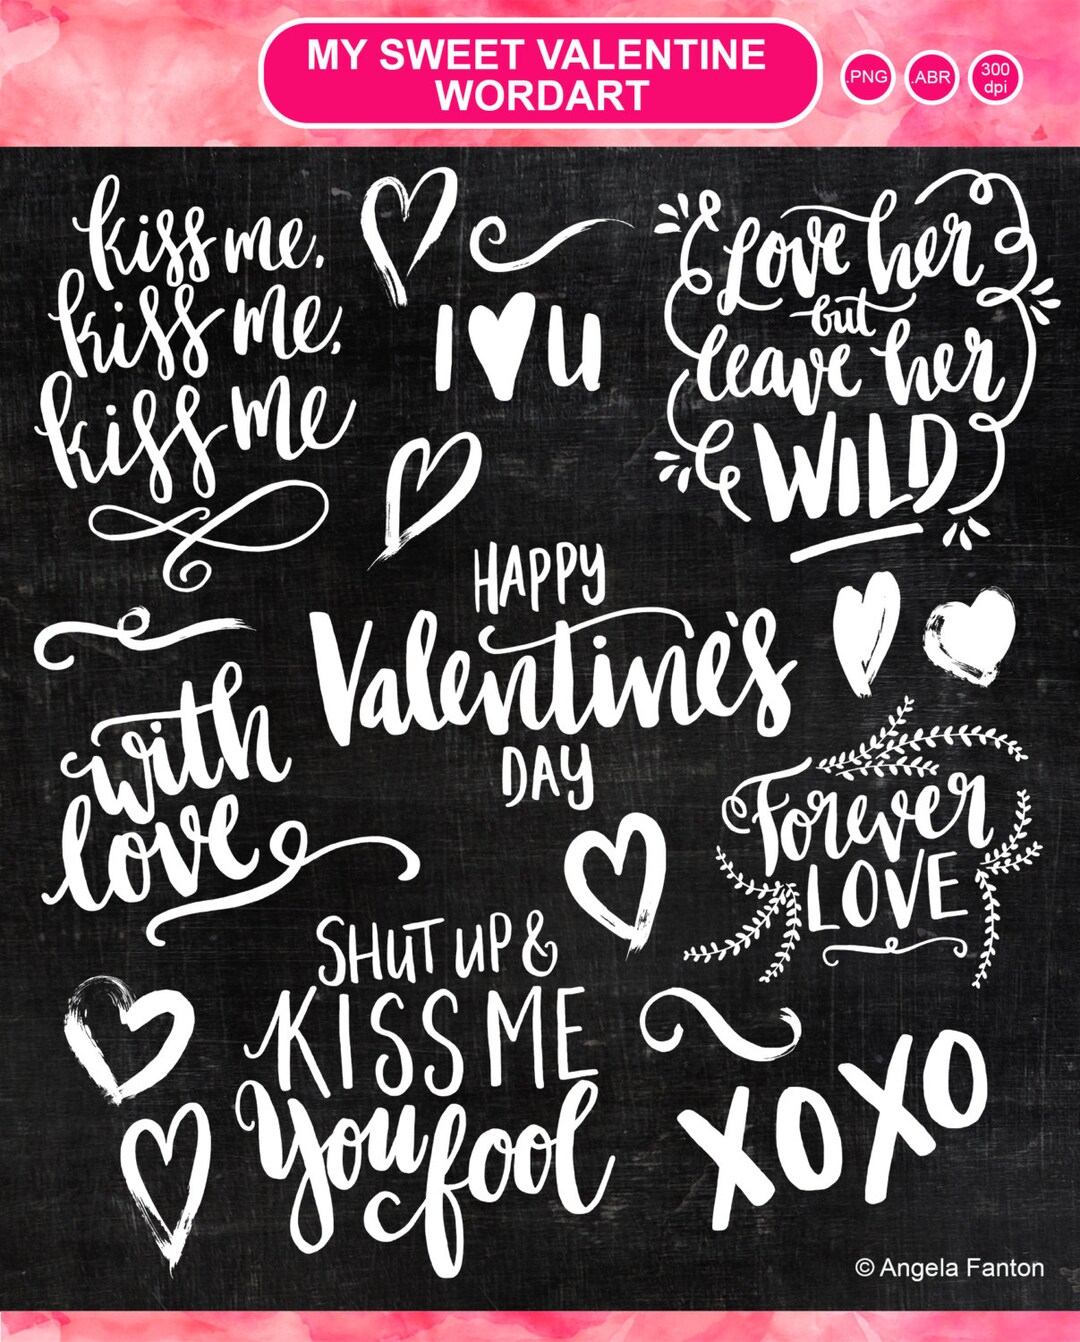 MY SWEET VALENTINE
WORDART
.PNG
.ABR
300
dpi
kiss me,
kiss me,
kiss me
I ♥ U
Love her
but
leave her
WILD
HAPPY
Valentine's
DAY
with
love
Forever
LOVE
SHUT UP &
KISS ME
You fool
XOXO
© Angela Fanton